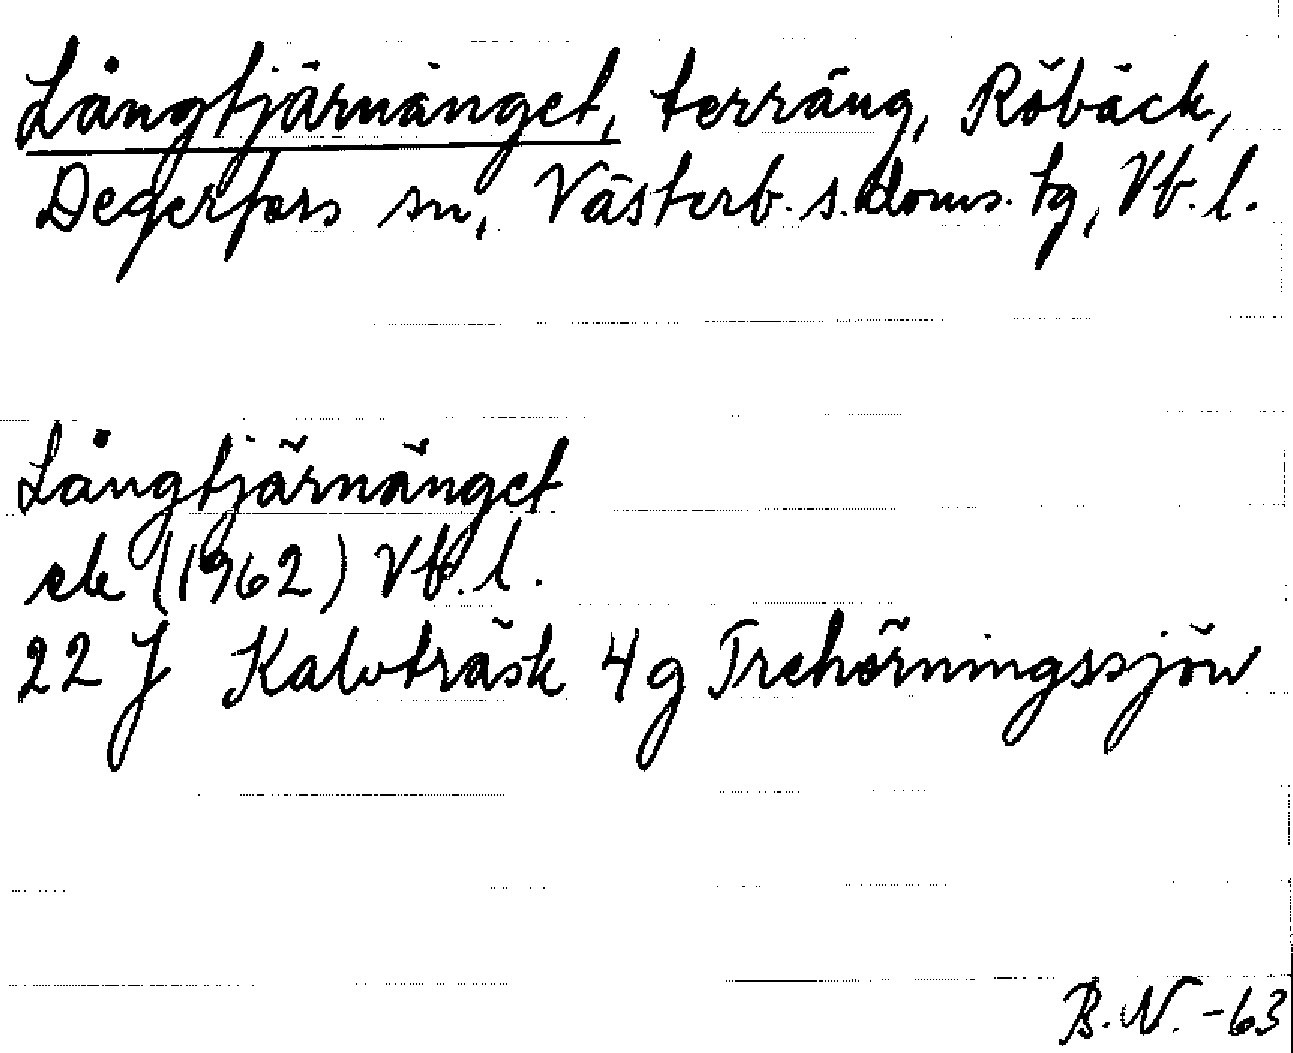 Långtjärnänget, terräng, Röbäck,
Degerfors sn, Västerb. s. doms. tg, Vb. l.
Långtjärnänget
ek (1962) Vb. l.
22 J Kalvträsk 4 g Trehörningssjön
B. N. -63